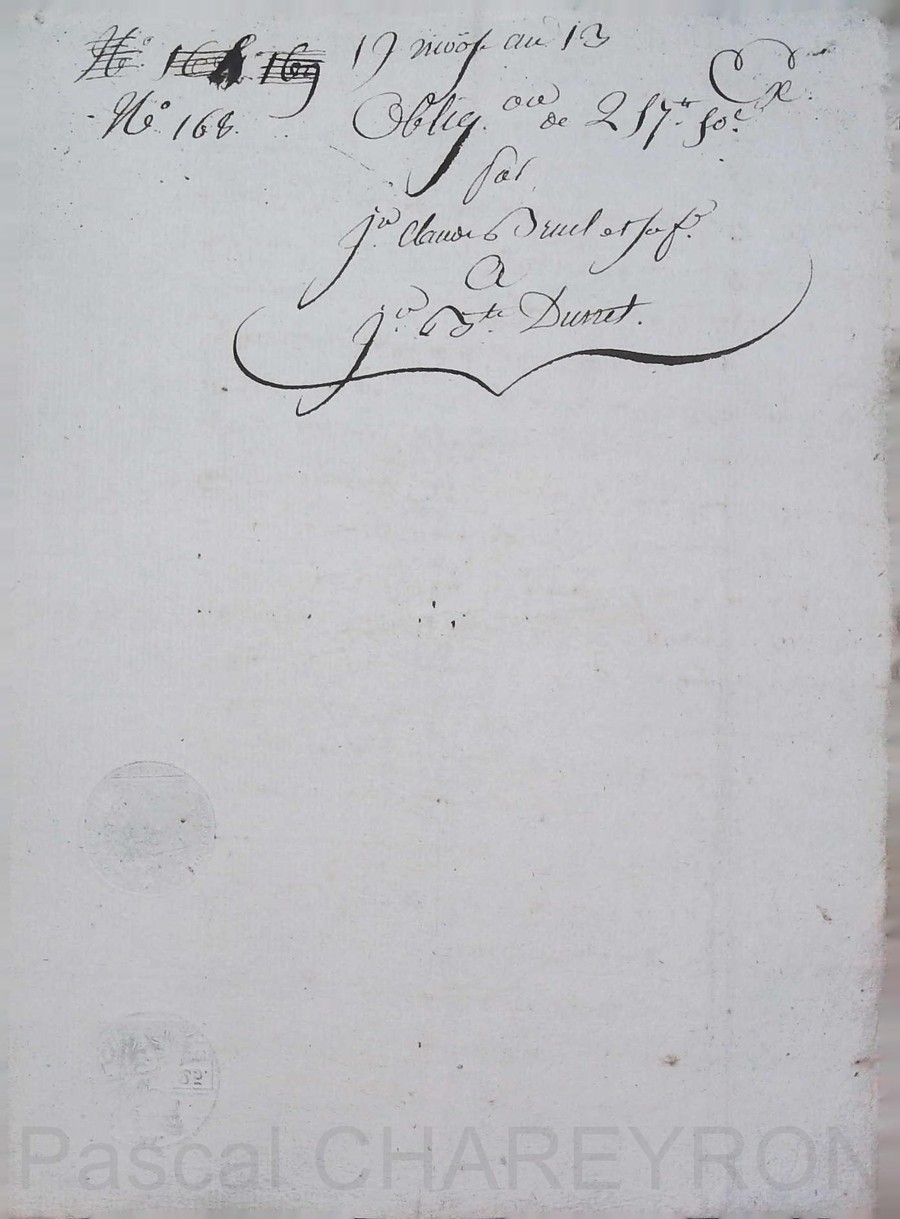 N.° 169
19 nivôse an 13
N.° 168.
Oblig.on de 217tt 50c
par
Jn Claude Bruel et sa f.e
A
Jn Bte Durret.
Pascal CHAREYRON